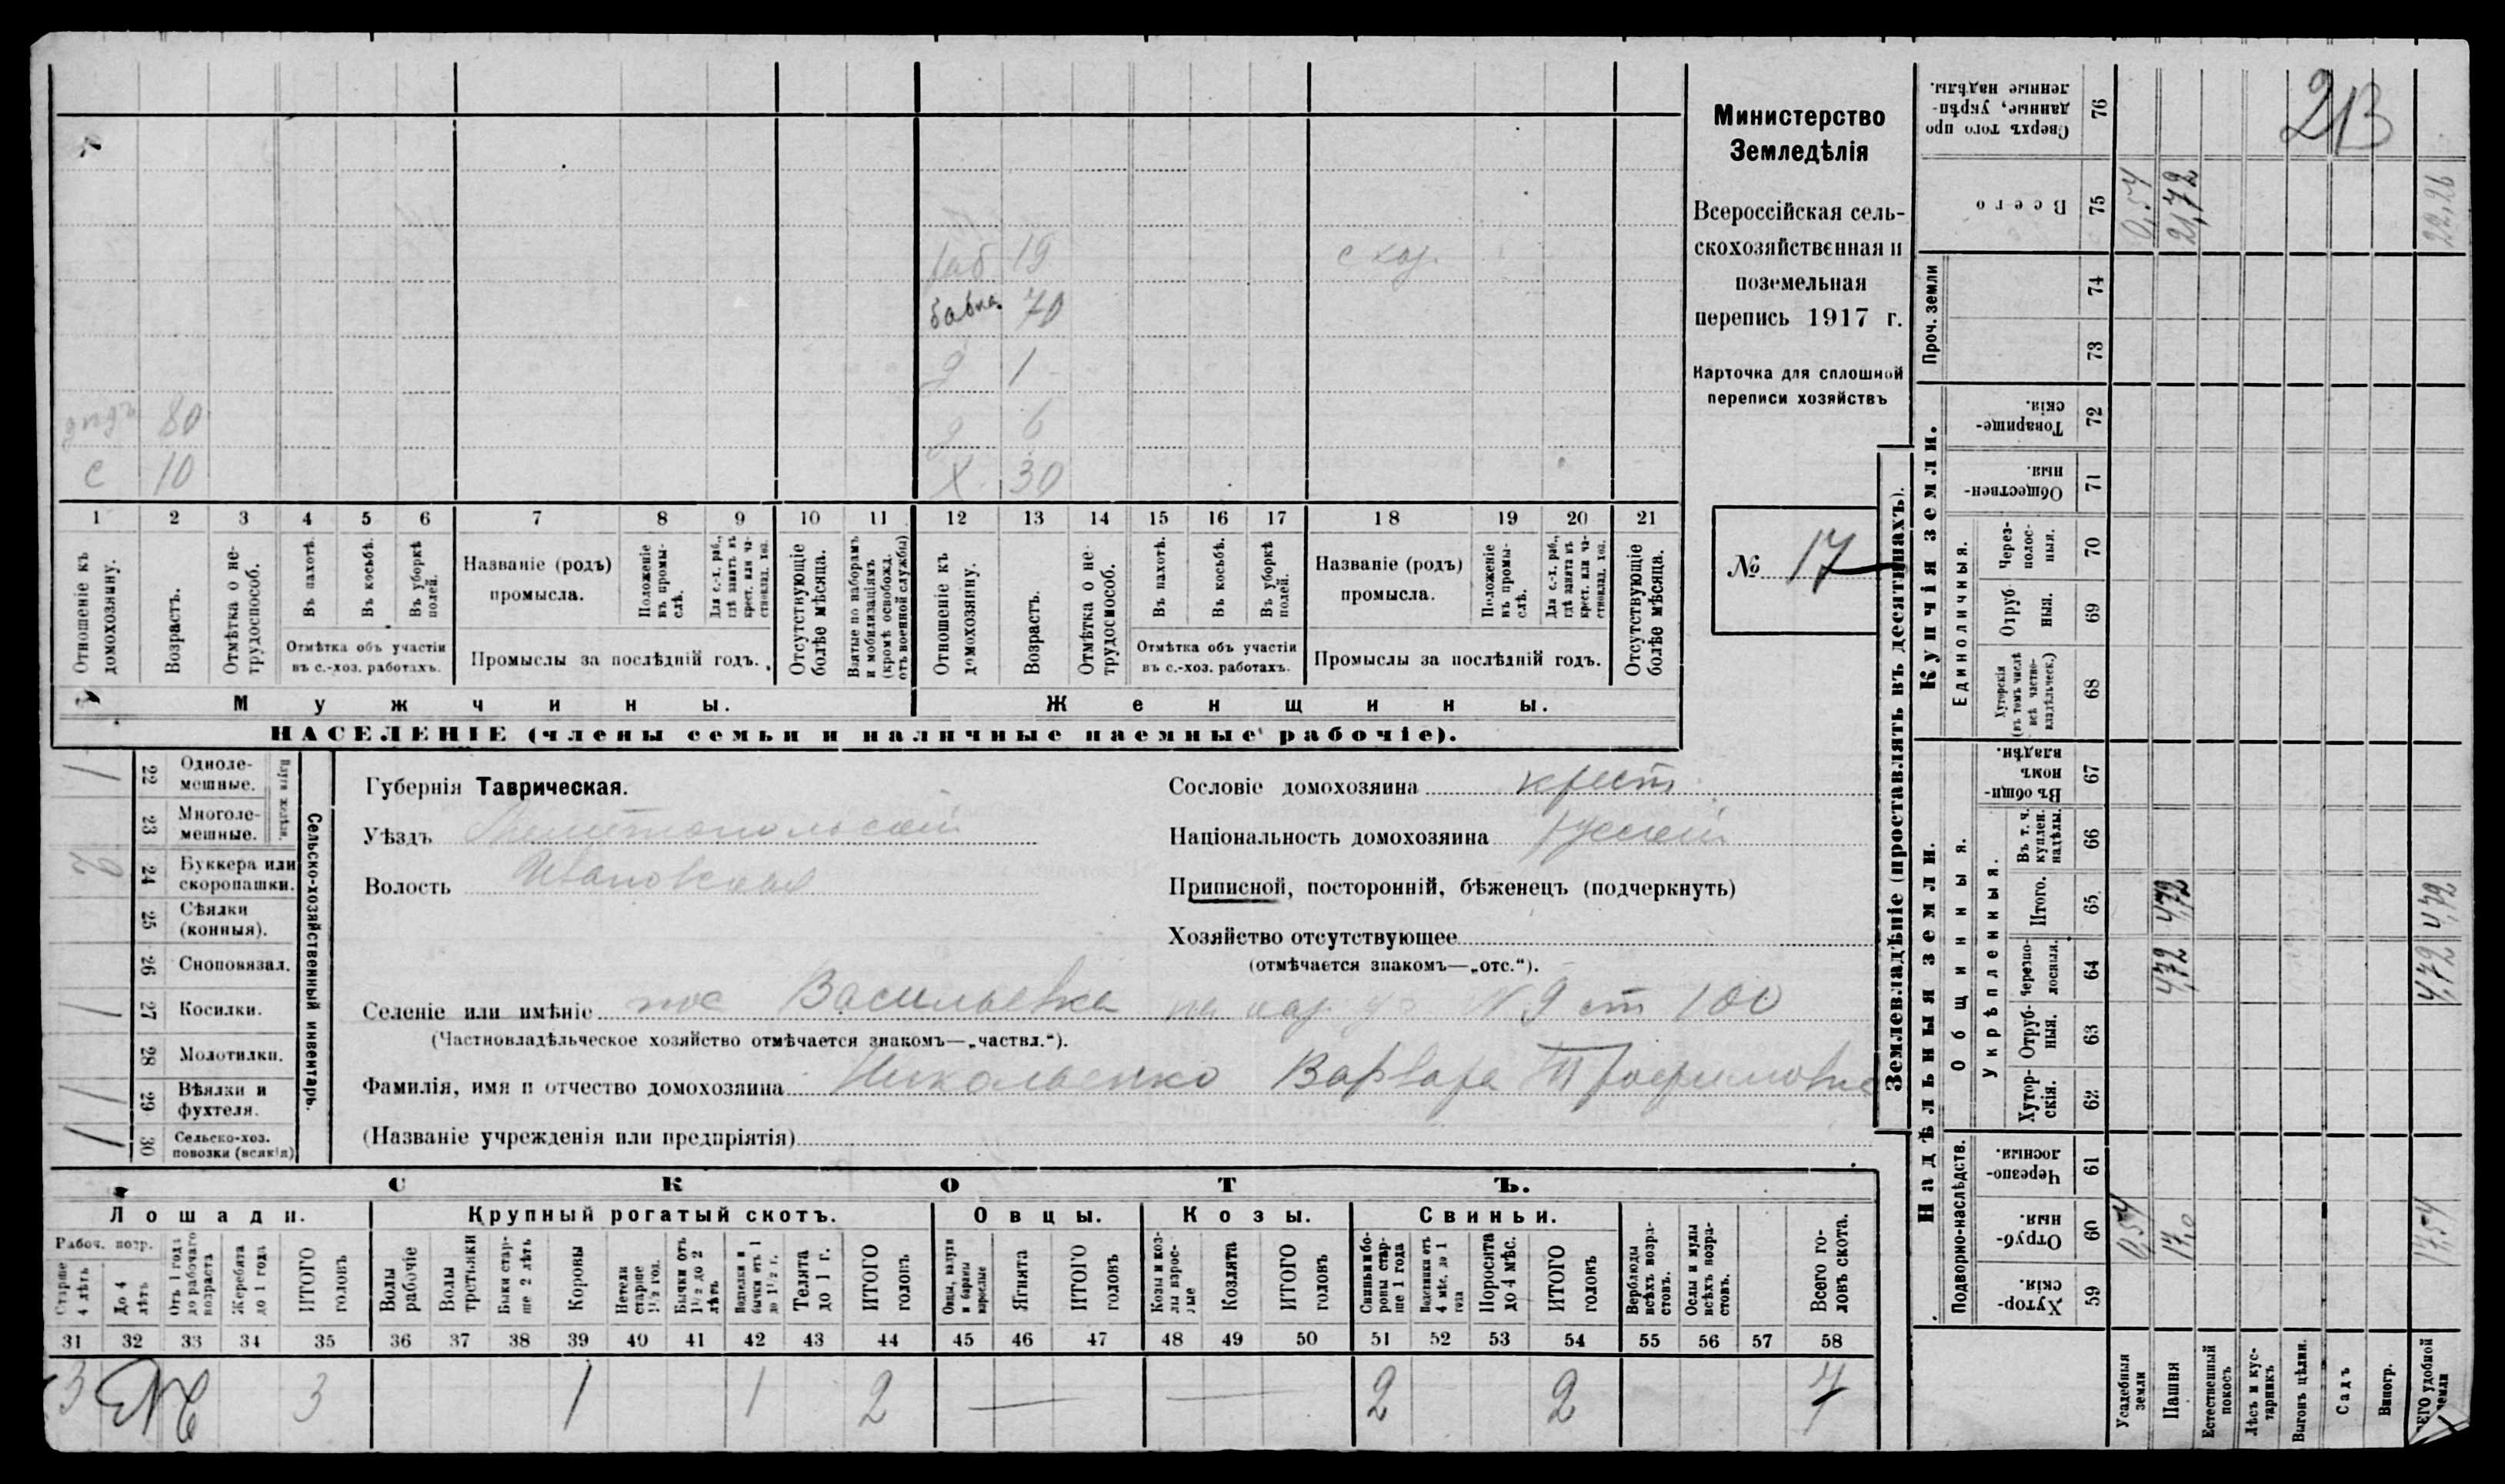 Министерство
Земледѣлія
Всероссійская сель-
скохозяйственная и
поземельная
перепись 1917 г.
Карточка для сплошной
переписи хозяйствъ
№ 17
213
раб 19 с хоз.
бабка 70
д 1
дѣдъ 80 д 6
с 10 Х 30
1 2 3 4 5 6 7 8 9 10 11 12 13 14 15 16 17 18 19 20 21
Отношеніе къ домохозяину.
Возрастъ.
Отмѣтка о не-трудоспособ.
Въ пахотѣ.
Въ косьбѣ.
Въ уборкѣ полей.
Отмѣтка объ участіи
въ с.-хоз. работахъ.
Названіе (родъ)
промысла.
Положеніе въ промы-слѣ.
Для с.-х. раб., гдѣ занятъ въ крест. или ча-стновлад. хоз.
Промыслы за послѣдній годъ.
Отсутствующіе болѣе мѣсяца.
Взятые по наборамъ и мобилизаціямъ (кромѣ освобожд. отъ военной службы)
Отношеніе къ домохозяину.
Возрастъ.
Отмѣтка о не-трудоспособ.
Въ пахотѣ.
Въ косьбѣ.
Въ уборкѣ полей.
Отмѣтка объ участіи
въ с.-хоз. работахъ.
Названіе (родъ)
промысла.
Положеніе въ промы-слѣ.
Для с.-х. раб., гдѣ занята въ крест. или ча-стновлад. хоз.
Промыслы за послѣдній годъ.
Отсутствующіе болѣе мѣсяца.
Мужчины.
Женщины.
НАСЕЛЕНІЕ (члены семьи и наличные наемные рабочіе).
Сельско-хозяйственный инвентарь.
1 22 Одноле-мешные.
23 Многоле-мешные.
24 Буккера или скоропашки.
25 Сѣялки (конныя).
26 Сноповязал.
1 27 Косилки.
28 Молотилки.
1 29 Вѣялки и фухтеля.
1 30 Сельско-хоз. повозки (всякія)
Губернія Таврическая.
Уѣздъ Мелитопольскій
Волость Ивановская
Сословіе домохозяина крест.
Національность домохозяина русскій
Приписной, посторонній, бѣженецъ (подчеркнуть)
Хозяйство отсутствующее
(отмѣчается знакомъ—„отс.“).
Селеніе или имѣніе пос Васильевка № 9 ст 100
(Частновладѣльческое хозяйство отмѣчается знакомъ—„частвл.“).
Фамилія, имя и отчество домохозяина Николаенко Варвара Трофимовна
(Названіе учрежденія или предпріятія)
СКОТЪ.
Лошади.
Крупный рогатый скотъ.
Овцы.
Козы.
Свиньи.
Рабоч. возр.
Старше 4 лѣтъ
До 4 лѣтъ
Отъ 1 года до рабочаго возраста
Жеребята до 1 года
ИТОГО головъ
Волы рабочіе
Волы третьяки
Быки стар-ше 2 лѣтъ
Коровы
Нетели старше 1½ год.
Бычки отъ 1½ до 2 лѣтъ
Телята до 1 г.
ИТОГО головъ
Ягнята
ИТОГО головъ
Козлята
ИТОГО головъ
Свиньи и бо-ровы стар-ше 1 года
Подсвинки отъ 4 мѣс. до 1 года
Поросята до 4 мѣс.
ИТОГО головъ
Верблюды всѣхъ возра-стовъ.
Ослы и мулы всѣхъ возра-стовъ.
Всего го-ловъ скота.
31 32 33 34 35 36 37 38 39 40 41 42 43 44 45 46 47 48 49 50 51 52 53 54 55 56 57 58
3 3 1 1 2 — — 2 2 7
Землевладѣніе (проставлять въ десятинахъ).
Надѣльныя земли.
Купчія земли.
Проч. земли
Подворно-наслѣдств.
Общинныя.
Укрѣпленныя.
Единоличныя.
Хутор-скія. 59
Отруб-ныя. 60
Черезпо-лосныя. 61
Хутор-скія. 62
Отруб-ныя. 63
Черезпо-лосныя. 64
Итого. 65
Въ т. ч. куплен. надѣлы. 66
Въ общи-номъ владѣн. 67
Хуторскія (въ томъ числѣ всѣ частно-владѣльческ.) 68
Отруб-ныя. 69
Через-полос-ныя. 70
Обществен-ныя. 71
Товарище-скія. 72
73
74
Всего 75
Сверхъ того про-данные, укрѣп-ленные надѣлы. 76
Усадебныя земли 0,54 0,54
Пашня 17,0 4,72 4,72 21,72
Естественный покосъ
Лѣсъ и кус-тарникъ
Выгонъ цѣлин.
Садъ
Виногр.
ВСЕГО удобной земли 17,54 4,72 4,72 22,26